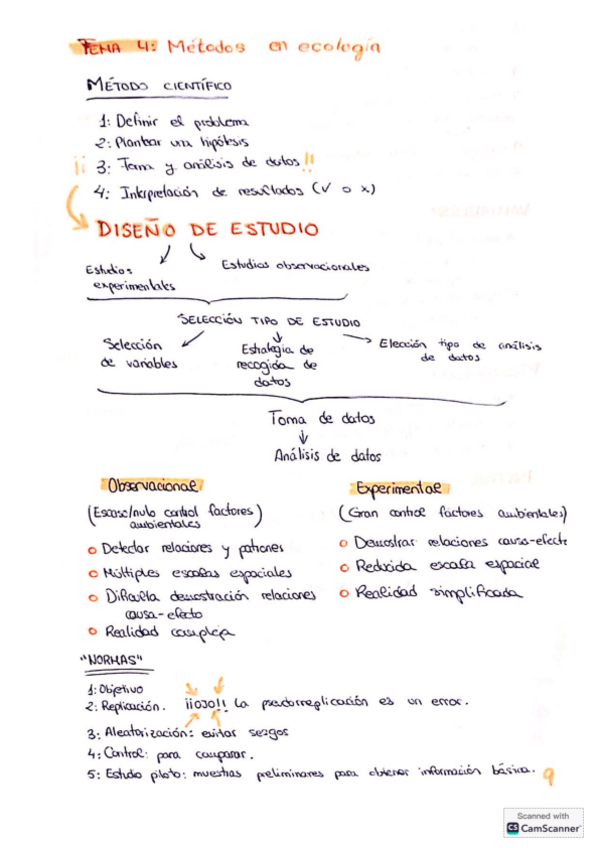 TEMA 4: Métodos en ecología
MÉTODO CIENTÍFICO
1: Definir el problema
2: Plantear una hipótesis
¡¡ 3: Toma y análisis de datos !!
4: Interpretación de resultados (✓ o x)
DISEÑO DE ESTUDIO
Estudios experimentales
Estudios observacionales
SELECCIÓN TIPO DE ESTUDIO
Selección de variables
Estrategia de recogida de datos
Elección tipo de análisis de datos
Toma de datos
↓
Análisis de datos
Observacional
(Escaso/nulo control factores ambientales)
o Detectar relaciones y patrones
o Múltiples escalas espaciales
o Dificulta demostración relaciones causa-efecto
o Realidad compleja
Experimental
(Gran control factores ambientales)
o Demostrar relaciones causa-efecto
o Reducida escala espacial
o Realidad simplificada
"NORMAS"
1: Objetivo
2: Replicación. ¡¡OJO!! La pseudorreplicación es un error.
3: Aleatorización: evitar sesgos
4: Control: para comparar.
5: Estudio piloto: muestras preliminares para obtener información básica.
Scanned with
CS CamScanner